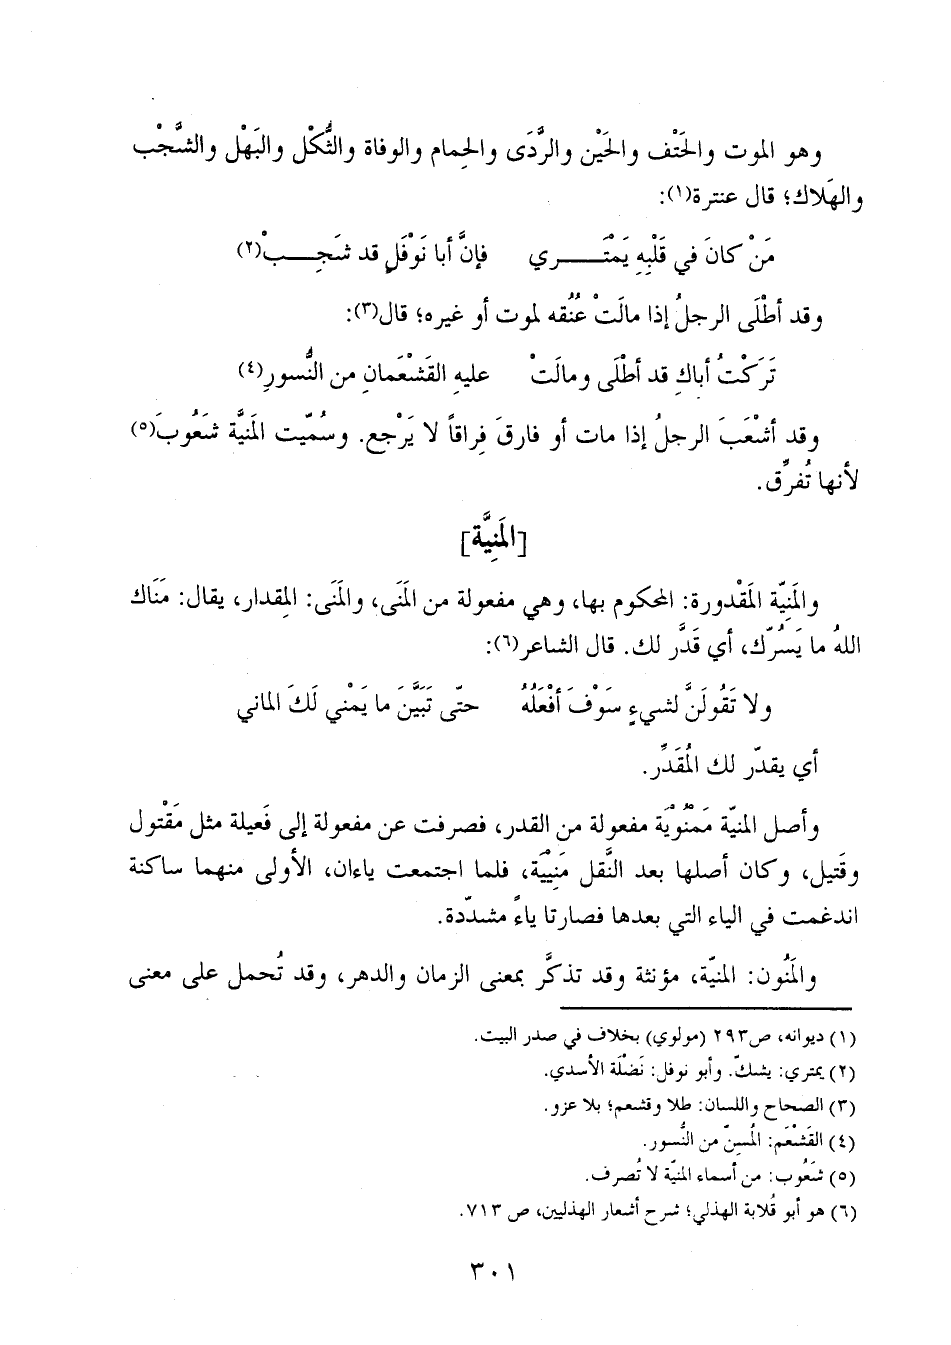 وهو الموت والحَتْف والحَيْن والرَّدَى والحِمام والوفاة والثُّكْل والبَهْل والشَّجْب
والهَلاك؛ قال عنترة(١):
مَنْ كانَ في قَلْبِهِ يَمْتَـــــري فإنَّ أبا نَوْفَلٍ قد شَجِـــــبْ(٢)
وقد أطْلَى الرجلُ إذا مالَتْ عُنُقه لموت أو غيره؛ قال(٣):
تَرَكْتُ أباكِ قد أطْلَى ومالَتْ عليهِ القَشْعَمانِ من النُّسورِ(٤)
وقد أشْعَبَ الرجلُ إذا مات أو فارقَ فِراقاً لا يَرْجع. وسُمّيت المَنيَّة شَعُوبَ(٥)
لأنها تُفرِّق.
[المَنِيَّة]
والمَنِيّة المَقْدورة: المحكوم بها، وهي مفعولة من المَنَى، والمَنَى: المِقدار، يقال: مَنَاك
اللهُ ما يَسُرّك، أي قَدَّر لك. قال الشاعر(٦):
ولا تَقُولَنَّ لشيءٍ سَوْفَ أفْعَلُهُ حتّى تَبَيَّنَ ما يَمْني لَكَ الماني
أي يقدّر لك المُقَدِّر.
وأصل المنيّة مَمْنُوْيَة مفعولة من القدر، فصرفت عن مفعولة إلى فَعيلة مثل مَقْتول
وقَتيل، وكان أصلها بعد النَّقل مَنِيْيَة، فلما اجتمعت ياءان، الأولى منهما ساكنة
اندغمت في الياء التي بعدها فصارتا ياءً مشدّدة.
والمَنُون: المنيّة، مؤنثة وقد تذكَّر بمعنى الزمان والدهر، وقد تُحمل على معنى
(١) ديوانه، ص٢٩٣ (مولوي) بخلاف في صدر البيت.
(٢) يمتري: يشكّ. وأبو نوفل: نَضْلَة الأسدي.
(٣) الصحاح واللسان: طلا وقشعم؛ بلا عزو.
(٤) القَشْعَم: المُسِنّ من النُّسور.
(٥) شَعُوب: من أسماء المنيّة لا تُصرف.
(٦) هو أبو قُلابة الهذلي؛ شرح أشعار الهذليين، ص ٧١٣.
٣٠١